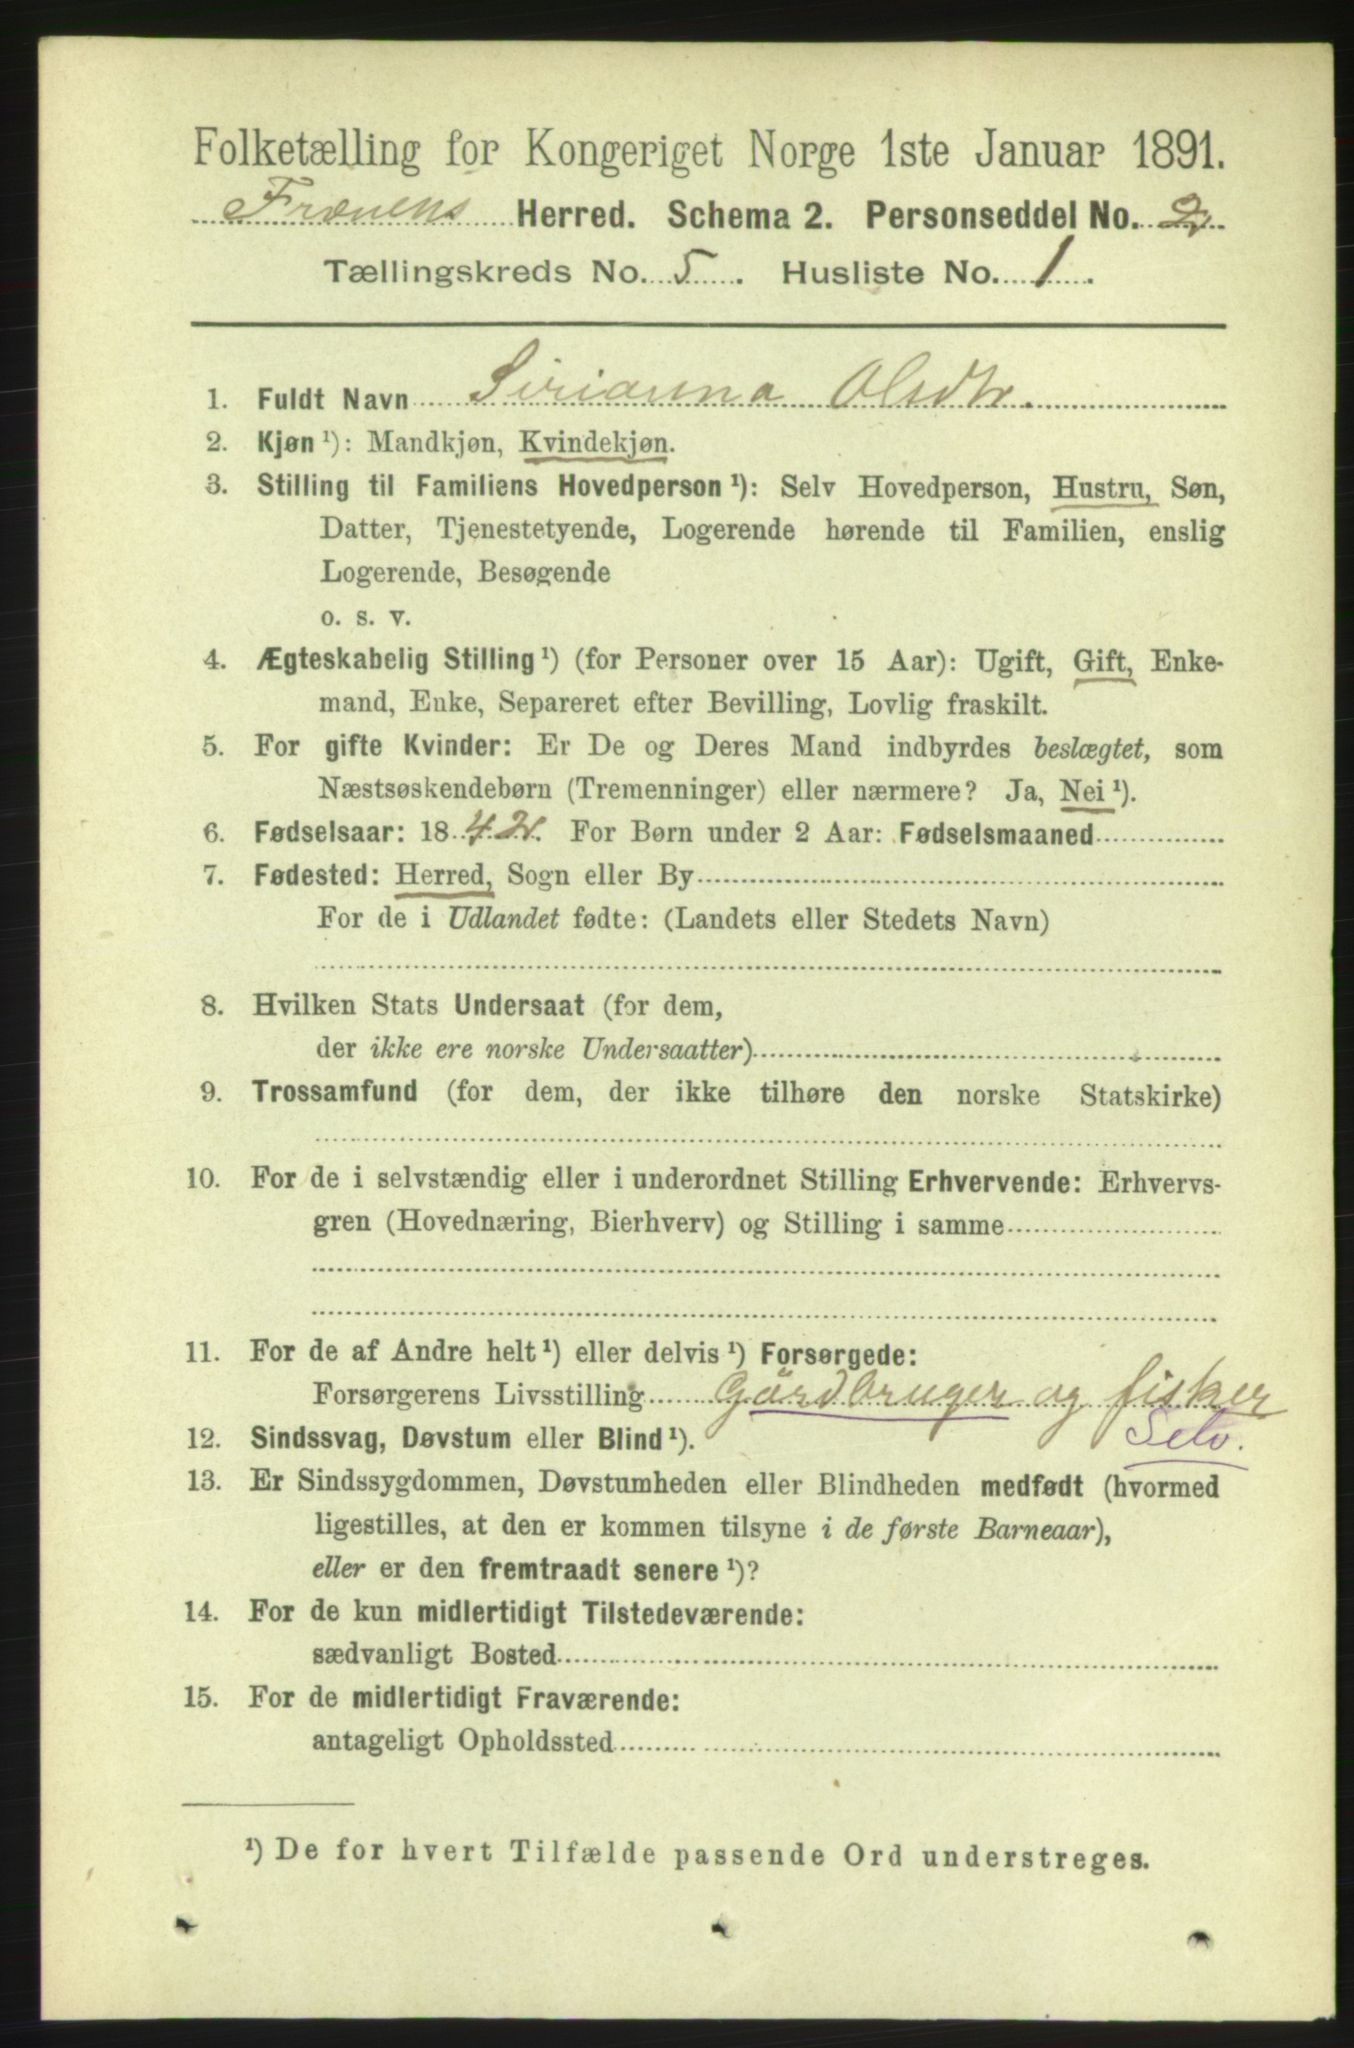 Folketælling for Kongeriget Norge 1ste Januar 1891.
Frænens Herred. Schema 2. Personseddel No. 2.
Tællingskreds No. 5. Husliste No. 1.
1. Fuldt Navn Sirianna Olsdtr.
2. Kjøn ¹): Mandkjøn, Kvindekjøn.
3. Stilling til Familiens Hovedperson ¹): Selv Hovedperson, Hustru, Søn,
Datter, Tjenestetyende, Logerende hørende til Familien, enslig
Logerende, Besøgende
o. s. v.
4. Ægteskabelig Stilling ¹) (for Personer over 15 Aar): Ugift, Gift, Enke-
mand, Enke, Separeret efter Bevilling, Lovlig fraskilt.
5. For gifte Kvinder: Er De og Deres Mand indbyrdes beslægtet, som
Næstsøskendebørn (Tremenninger) eller nærmere? Ja, Nei ¹).
6. Fødselsaar: 1842. For Børn under 2 Aar: Fødselsmaaned
7. Fødested: Herred, Sogn eller By
For de i Udlandet fødte: (Landets eller Stedets Navn)
8. Hvilken Stats Undersaat (for dem,
der ikke ere norske Undersaatter)
9. Trossamfund (for dem, der ikke tilhøre den norske Statskirke)
10. For de i selvstændig eller i underordnet Stilling Erhvervende: Erhvervs-
gren (Hovednæring, Bierhverv) og Stilling i samme
11. For de af Andre helt ¹) eller delvis ¹) Forsørgede:
Forsørgerens Livsstilling Gårdbruger og fisker
12. Sindssvag, Døvstum eller Blind ¹). Selv.
13. Er Sindssygdommen, Døvstumheden eller Blindheden medfødt (hvormed
ligestilles, at den er kommen tilsyne i de første Barneaar),
eller er den fremtraadt senere ¹)?
14. For de kun midlertidigt Tilstedeværende:
sædvanligt Bosted
15. For de midlertidigt Fraværende:
antageligt Opholdssted
¹) De for hvert Tilfælde passende Ord understreges.